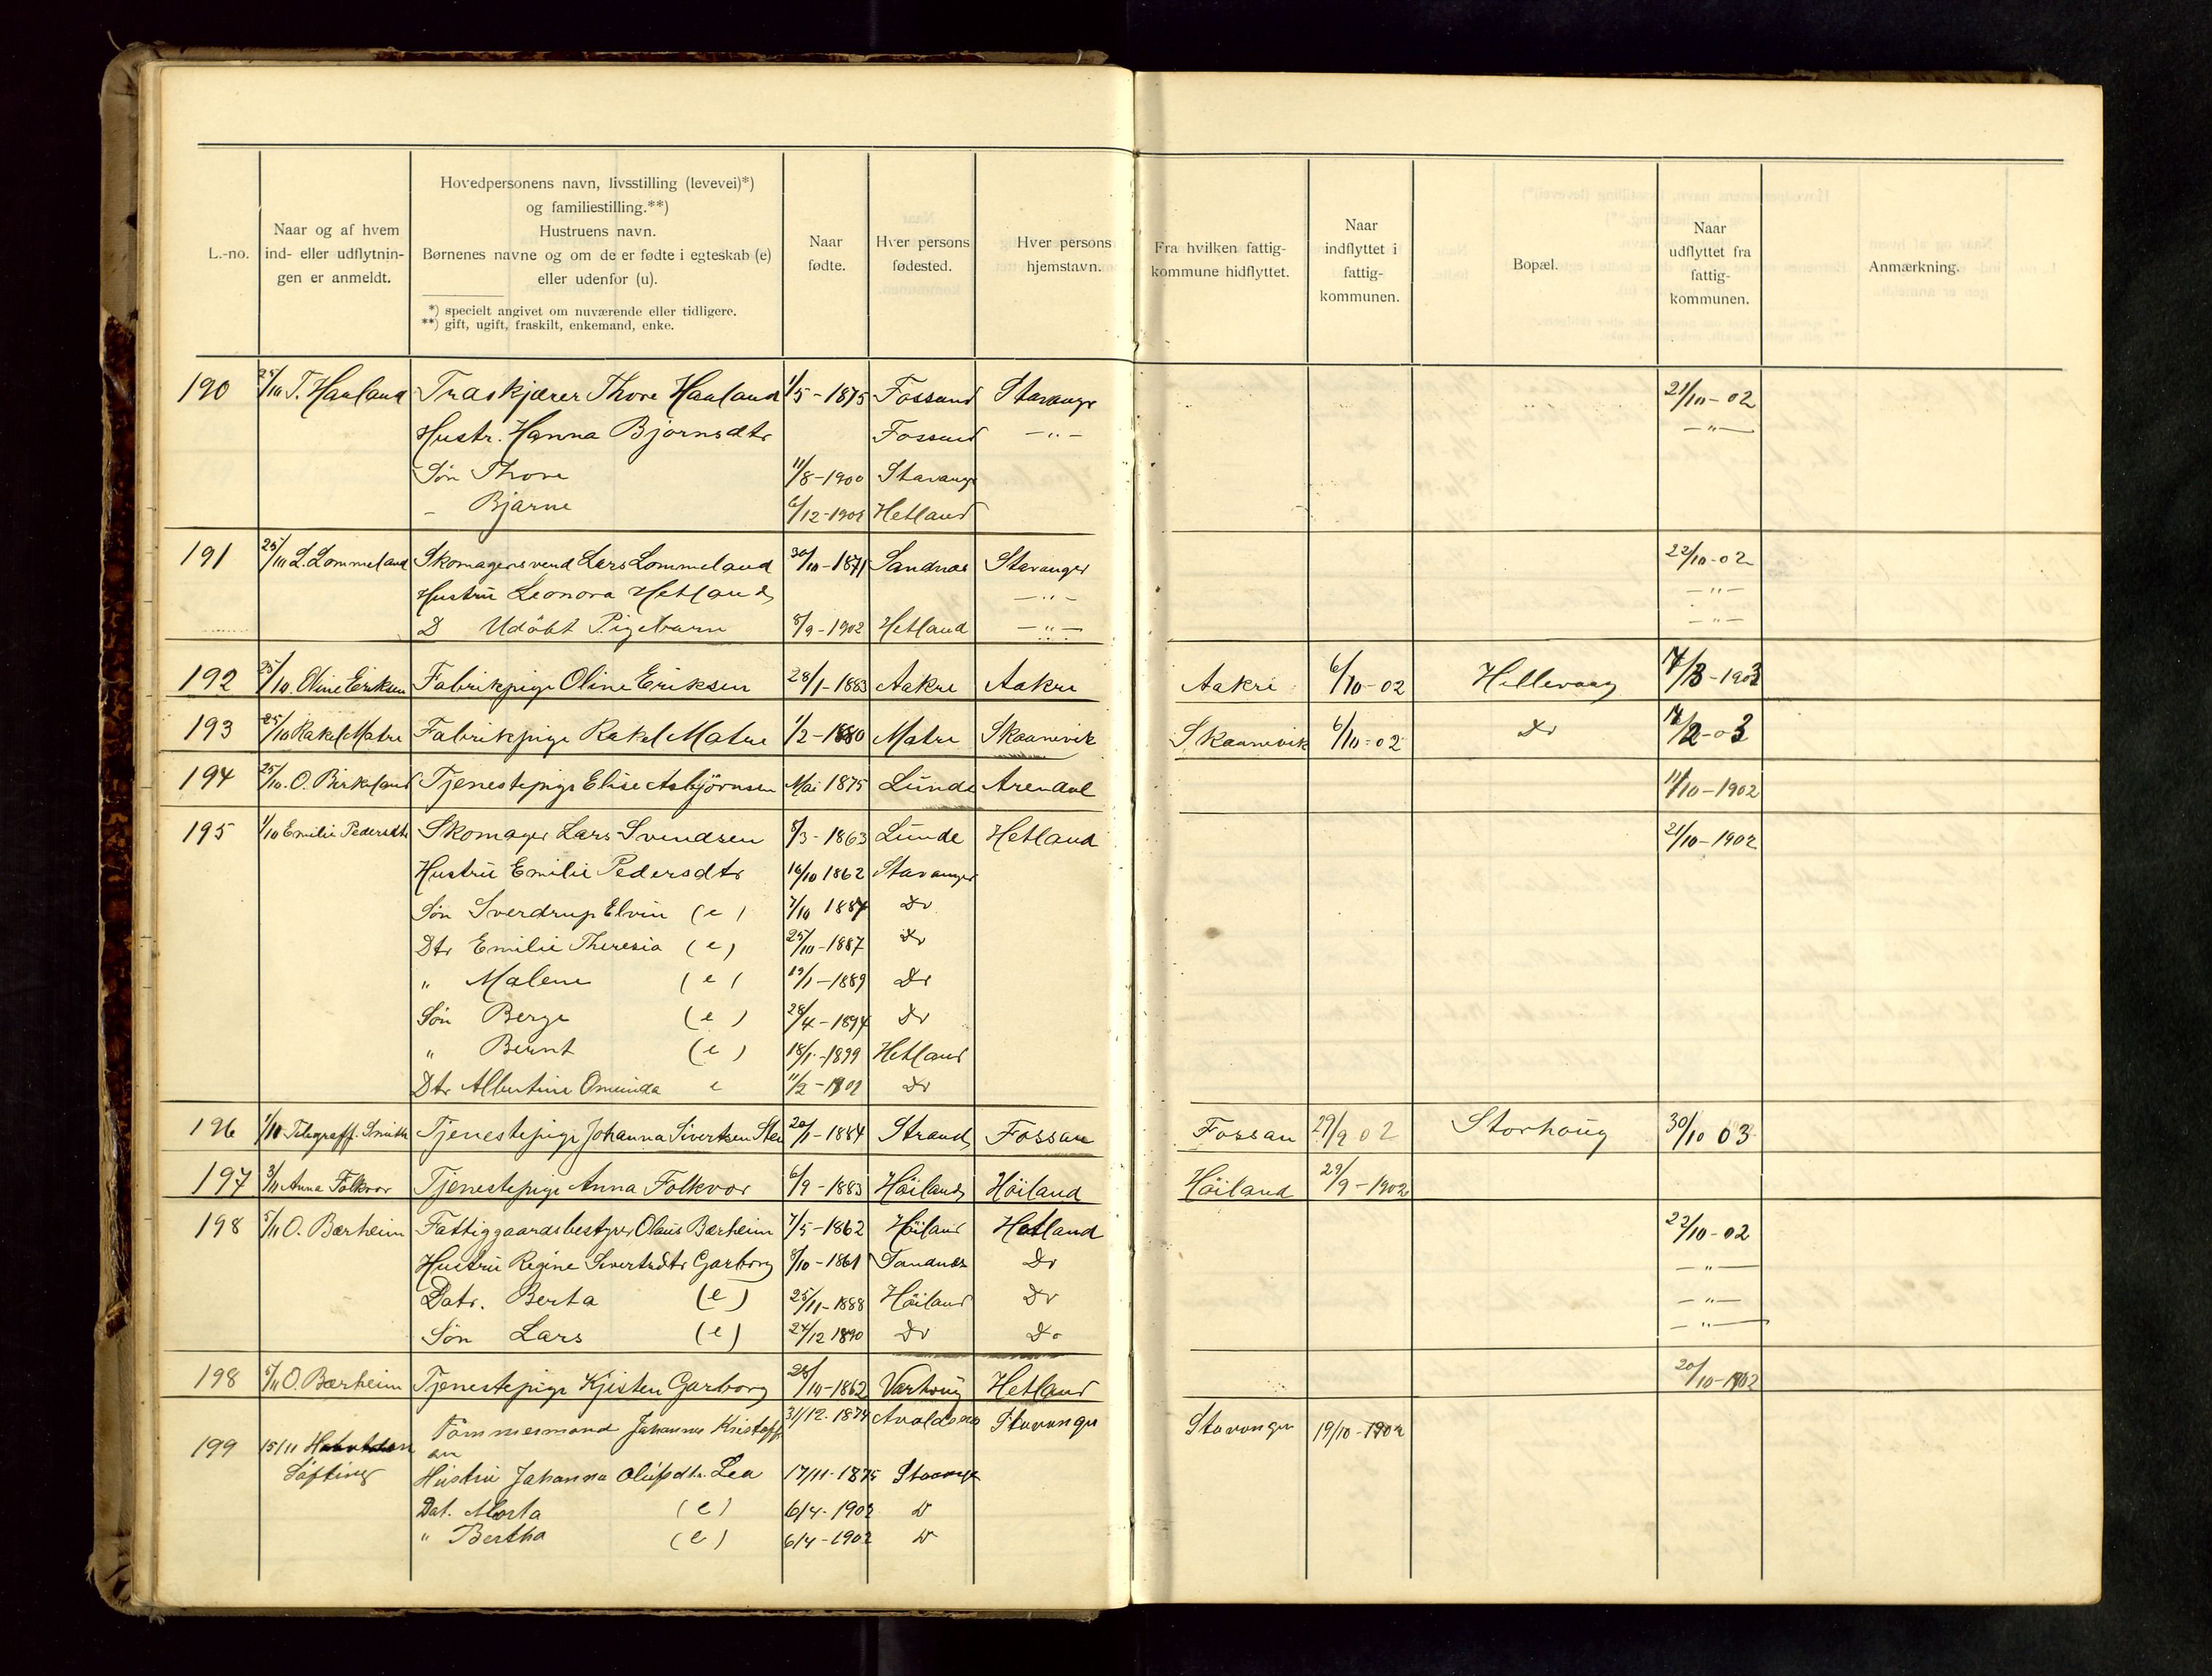 L.-no.
Naar og af hvem ind- eller udflytnin- gen er anmeldt.
Hovedpersonens navn, livsstilling (levevei)*) og familiestilling.**) Hustruens navn. Børnenes navne og om de er fødte i egteskab (e) eller udenfor (u).
*) specielt angivet om nuværende eller tidligere.
**) gift, ugift, fraskilt, enkemand, enke.
Naar fødte.
Hver persons fødested.
Hver persons hjemstavn.
Fra hvilken fattig- kommune hidflyttet.
Naar indflyttet i fattig- kommunen.
Bopæl.
Naar udflyttet fra fattig- kommunen.
Anmærkning.
190 25/10 T. Hauland Træskjærer Thore Hauland 1/5-1875 Fossand Stavanger 21/10-02
Hustr. Hanna Bjørnsdtr Fossand -"- -"-
Søn Thore 11/8-1900 Stavanger
- Bjarne 6/12-1901 Hetland
191 25/10 L. Lommeland Skomagersvend Lars Lommeland 30/10-1871 Sandnæs Stavanger 22/10-02
Hustrü Leonora Hetland -"- -"-
D Udøbt Pigebarn 8/9-1902 Hetland -"- -"-
192 25/10 Oline Eriksen Fabrikpige Oline Eriksen 28/1-1883 Aakre Aakre Aakre 6/10-02 Hillevaag 7/3-1903
193 25/10 Rakel Matre Fabrikpige Rakel Matre 1/2-1880 Matre Skaanevik Skaanevik 6/10-02 Do /2-03
194 25/10 O. Birkeland Tjenestepige Elise Asbjörnsen Mai 1875 Lünde Arendal 11/10-1902
195 1/10 Emilie Pedersdtr Skomager Lars Svendsen 8/3-1863 Lünde Hetland 21/10-1902
Hustrü Emilie Pedersdtr 16/10 1862 Stavanger
Søn Sverdrup Elvin (e) 7/10 1884 Do
Dtr Emilie Theresia (e) 25/10-1887 Do
" Malene (e) 19/1-1889 Do
Søn Berge (e) 28/4-1894 Do
" Bernt (e) 18/1-1899 Hetland
Dtr Albertine Omünda e 11/2-1902 Do
196 1/10 Telegraff. Smith Tjenestepige Johanna Sivertsen 20/1-1884 Strand Fossan Fossan 29/9 02 Storhoüg 30/10 03
197 3/11 Anna Folkvor Tjenestepige Anna Folkvor 6/9-1883 Höiland Höiland Höiland 29/9-1902
198 5/11 O. Bærheim Fattiggaardsbestyrer Olaüs Bærheim 7/5-1862 Höiland Hetland 22/10-02
Hustrü Regine Sivertsdtr Garborg 8/10-1861 Sandnæs Do -"-
Datr. Berta (e) 25/11-1888 Höiland Do -"-
Søn Lars (e) 24/12 1890 Do Do -"-
198 5/11 O. Bærheim Tjenestepige Kjisten Garborg 28/10-1862 Varhoüg Hetland 20/10-1902
199 15/11 Tömmermand Johannes Kristoff 31/12-1874 Avaldsnes Stavanger Stavanger 19/10-1902
Löfting en
Hüstrü Johanna Olüfsdtr. Lea 17/11-1875 Stavanger
Dat. Marta (e) 6/4-1902 Do
" Bertha (e) 6/4-1902 Do